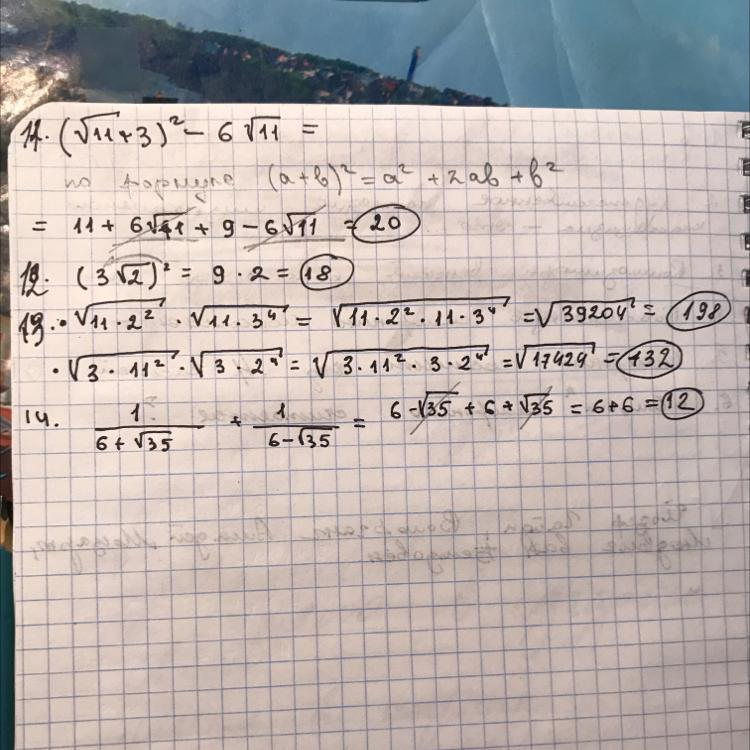 11. (√11+3)² - 6√11 =
по формуле (a+b)² = a² + 2ab + b²
= 11 + 6√11 + 9 - 6√11 = 20
12. (3√2)² = 9 · 2 = 18
13. • √11·2² · √11·3⁴ = √11·2²·11·3⁴ = √39204 = 198
• √3·11² · √3·2⁴ = √3·11²·3·2⁴ = √17424 = 132
14. 1/(6+√35) + 1/(6-√35) = 6-√35 + 6+√35 = 6+6 = 12